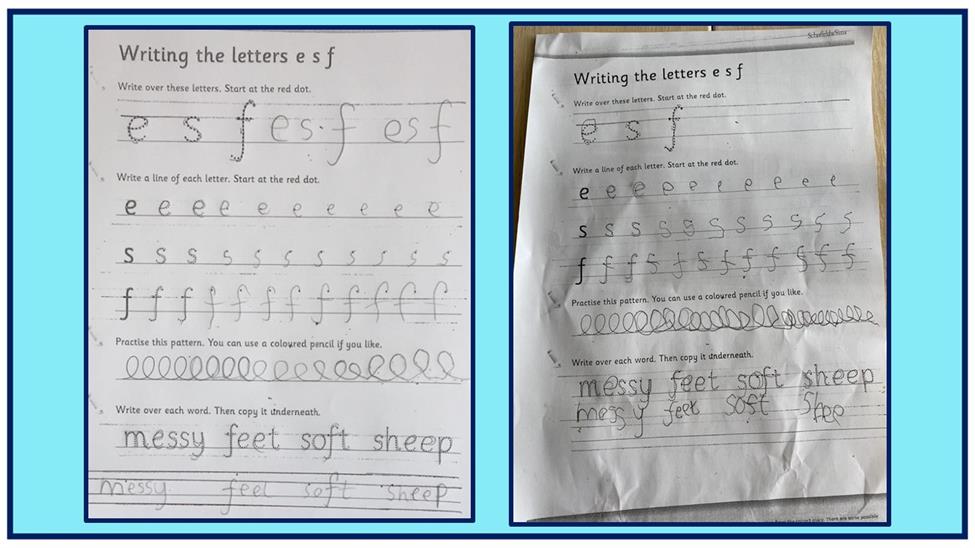 Writing the letters e s f
Write over these letters. Start at the red dot.
e s f e s f e s f
Write a line of each letter. Start at the red dot.
e e e e e e e e e e
s s s s s s s s s s s
f f f f f f f f f f f f
Practise this pattern. You can use a coloured pencil if you like.
Write over each word. Then copy it underneath.
messy feet soft sheep
messy feel soft sheep
Schofield&Sims
Writing the letters e s f
Write over these letters. Start at the red dot.
e s f
Write a line of each letter. Start at the red dot.
e e e e e e e e e e
s s s s s s s s s s s
f f f f f f f f f f f f
Practise this pattern. You can use a coloured pencil if you like.
Write over each word. Then copy it underneath.
messy feet soft sheep
messy feet soft shee